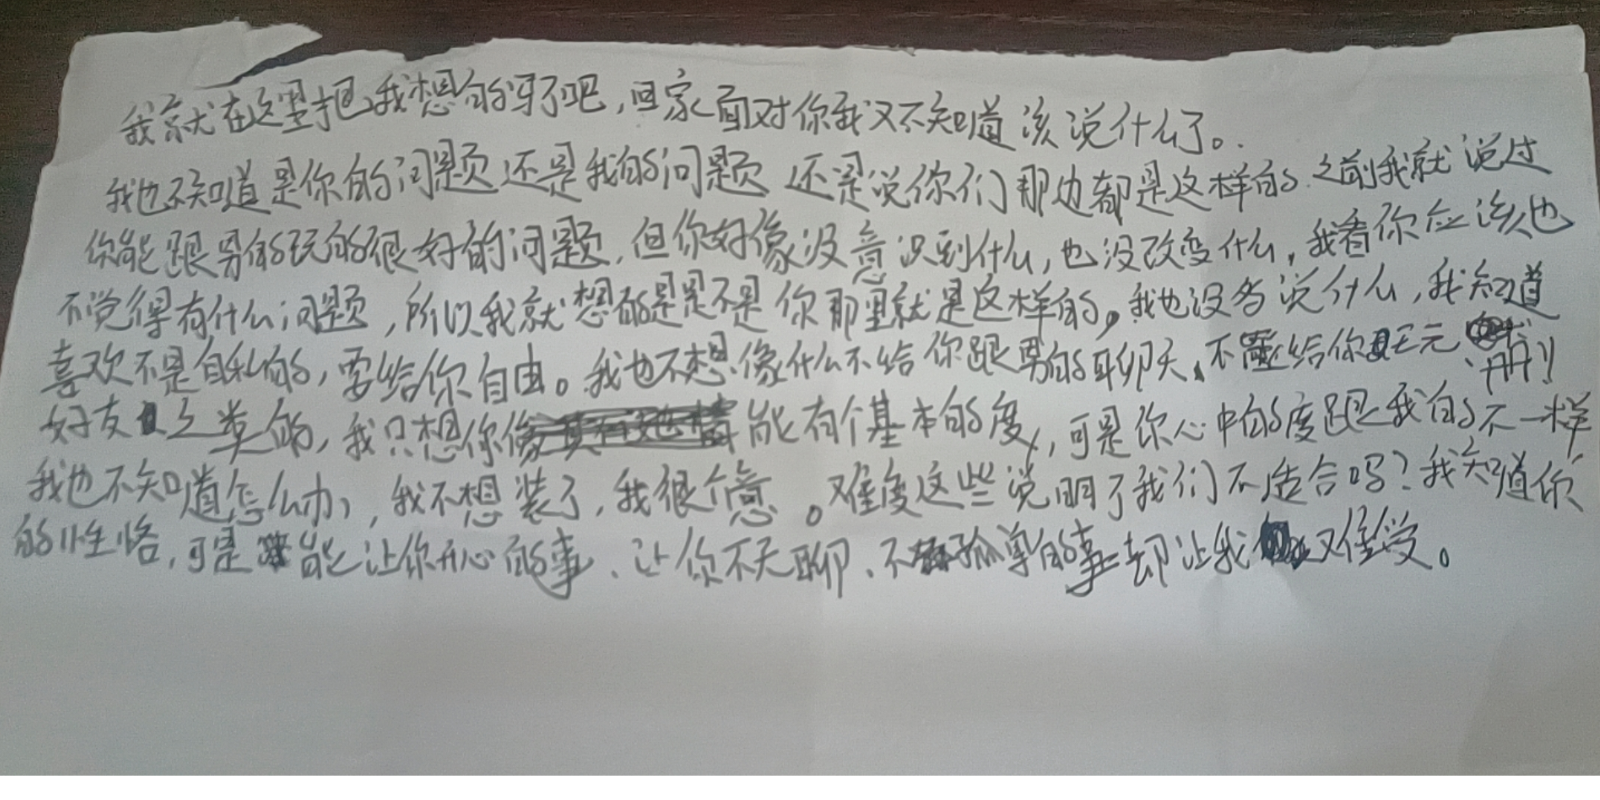 我就在这里把我想的写了吧，回家面对你我又不知道该说什么了。
我也不知道是你的问题还是我的问题 还是说你们那边都是这样的. 之前我就说过
你能跟男的玩的很好的问题，但你好像没意识到什么，也没改变什么，我看你应该也
不觉得有什么问题，所以我就想的是是不是你那里就是这样的，我也没多说什么，我知道
喜欢不是自私的，要给你自由。我也不想像什么不给你跟男的聊天、不给你 元 删
好友之类的，我只想你能有个基本的度，可是你心中的度跟我的不一样
我也不知道怎么办，我不想装了，我很介意。难度这些说明了我们不适合吗？我知道你
的性格，可是能让你开心的事、让你不无聊、不孤单的事却让我又难受。